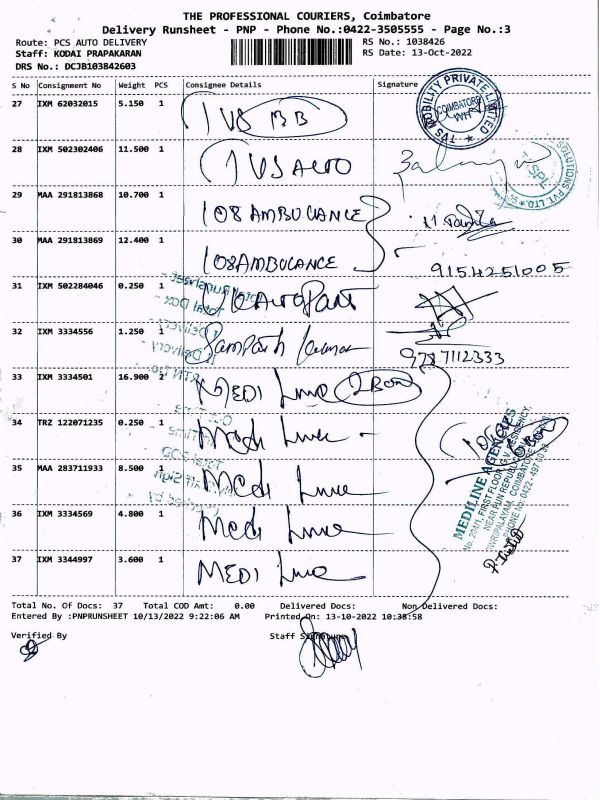 THE PROFESSIONAL COURIERS, Coimbatore
Delivery Runsheet - PNP - Phone No.:0422-3505555 - Page No.:3
Route: PCS AUTO DELIVERY
RS No.: 1038426
Staff: KODAI PRAPAKARAN
RS Date: 13-Oct-2022
DRS No.: DCJB103842603
S No Consignment No Weight PCS Consignee Details Signature
27 IXM 62032015 5.150 1 TVS BB
TVS MOBILITY PRIVATE LIMITED COIMBATORE
28 IXM 502302406 11.500 1 TVS AUTO
SOLUTIONS PVT. LTD.
29 MAA 291813868 10.700 1 108 AMBULANCE
30 MAA 291813869 12.400 1 108 AMBULANCE
9154251005
31 IXM 502284046 0.250 1
32 IXM 3334556 1.250 1 Sampath Kumar
9787112333
33 IXM 3334501 16.900 2 MEDI Line 2 Box
34 TRZ 122071235 0.250 1 Medi Line
MEDILINE AGENCIES
35 MAA 283711933 8.500 1 Medi Line
36 IXM 3334569 4.800 1 Medi Line
37 IXM 3344997 3.600 1 MEDI Line
Total No. Of Docs: 37 Total COD Amt: 0.00 Delivered Docs: Non Delivered Docs:
Entered By :PNPRUNSHEET 10/13/2022 9:22:06 AM Printed On: 13-10-2022 10:38:58
Verified By Staff Signature